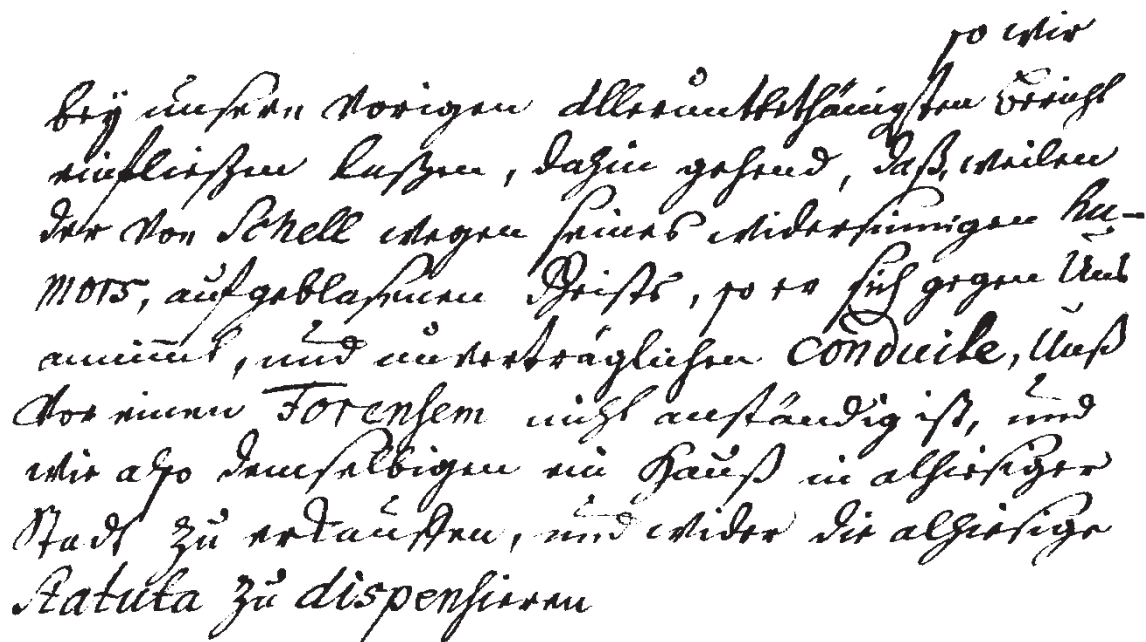 so wir
bey unsern vorigen allerunterthänigsten Bericht
einfließen laßen, dahin gehend, daß, weilen
der von Schell wegen seines widersinnigen hu-
mors, aufgeblasenen Geists, so er sich gegen Uns
annimmt, und unverträglichen conduite, Unß
vor einen Forensem nicht anständig ist, und
wir also demselbigen ein Hauß in alhiesiger
Stadt zu erkauffen, und wider die alhiesige
Statuta zu dispensieren